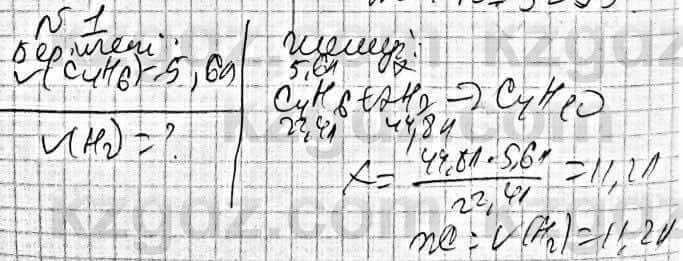 № 1
Берілгені:
V(C4H6)=5,6л
V(H2)=?
Шешуі:
5,6л x
C4H6+2H2→C4H10
22,4л 44,8л
x= 44,8л·5,6л =11,2л
22,4л
ж: V(H2)=11,2л